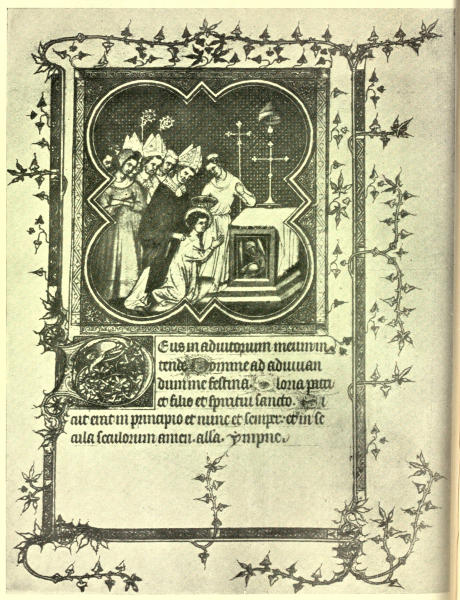 Eus in adiutorium meum in
tende Domine ad adiuuan
dum me festina. Gloria patri
et filio et spiritui sancto. Si
cut erat in principio et nunc et semper. et in se
cula seculorum amen. alla. ympne.